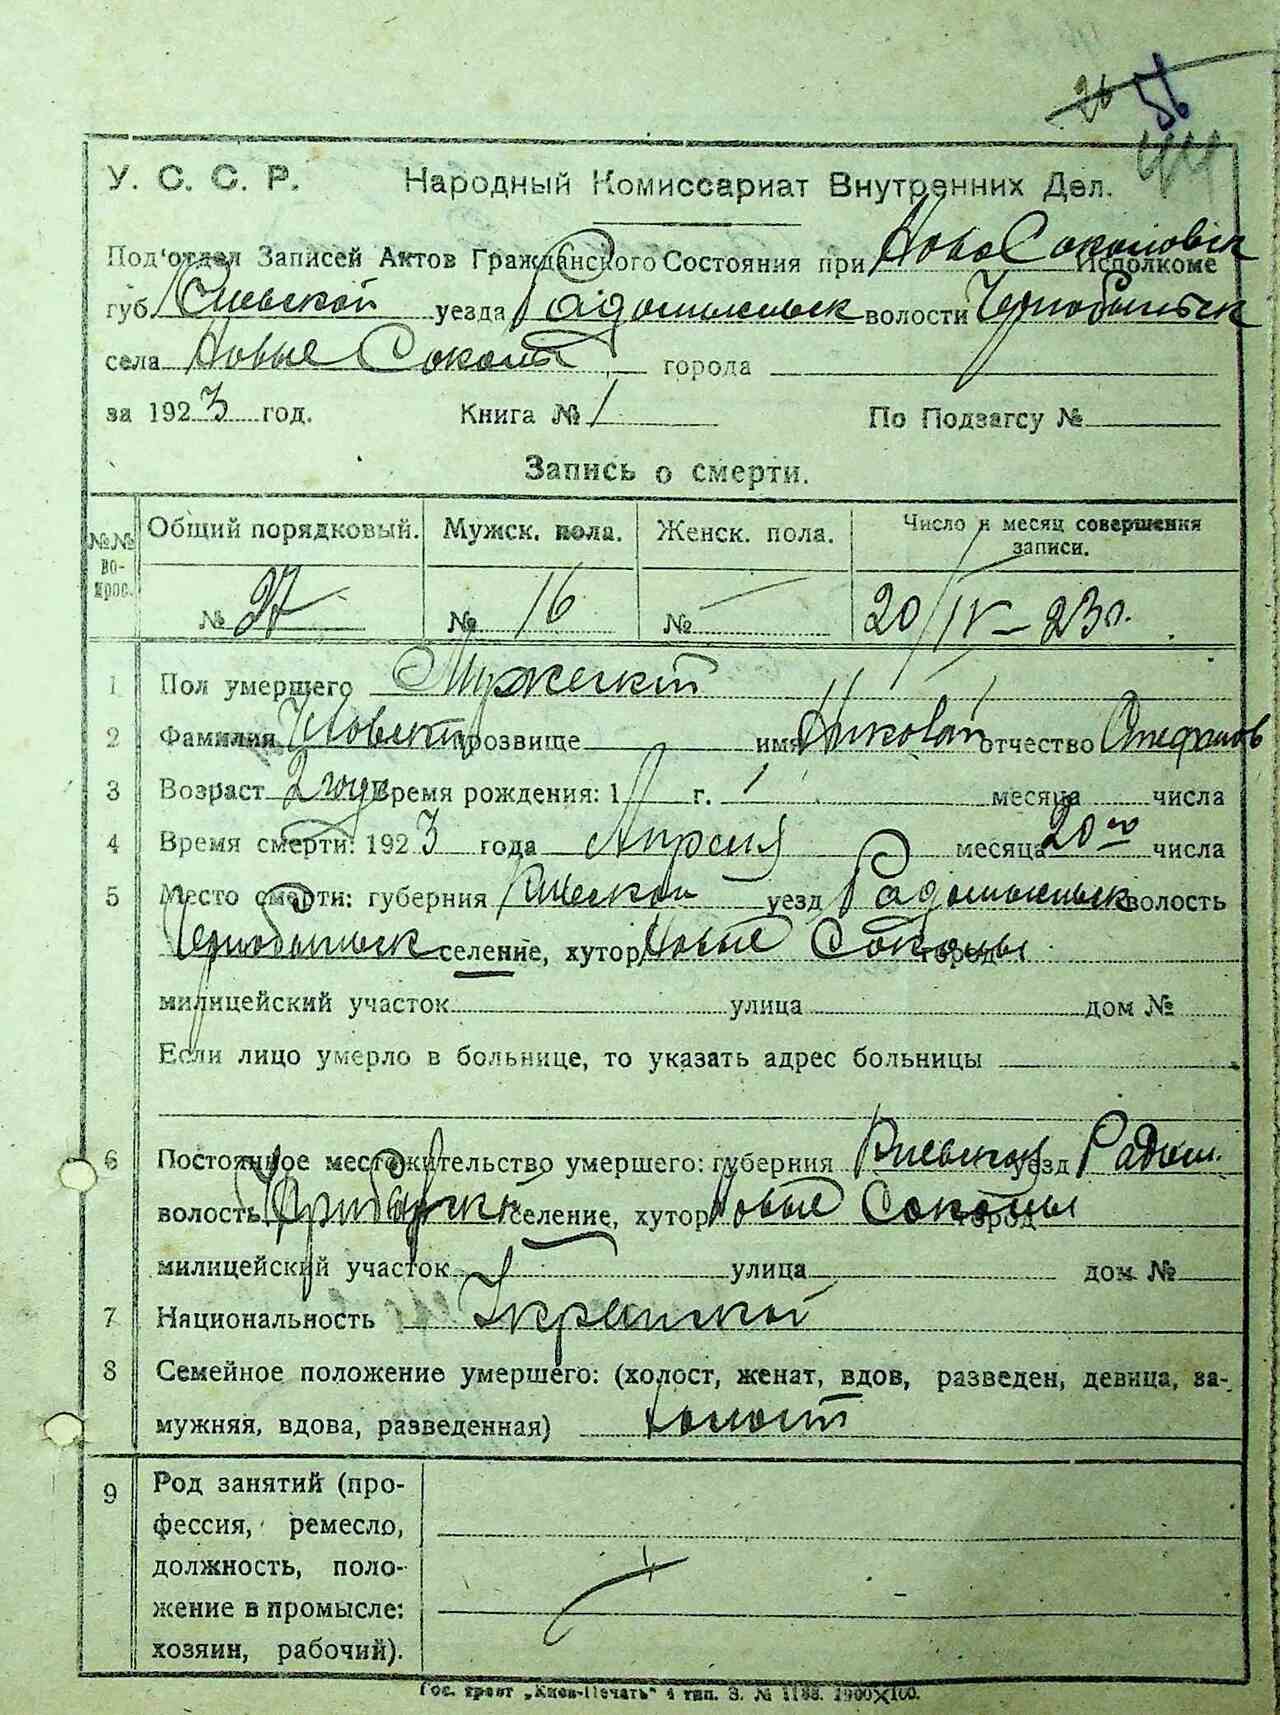 26 56
У. С. С. Р. Народный Комиссариат Внутренних Дел.
Под'отдел Записей Актов Гражданского Состояния при Ново Соколовск Исполкоме
губ. Киевской уезда Радомысльск волости Чернобыльск
села Новые Соколы города
за 1923 год. Книга № 1 По Подзагсу №
Запись о смерти.
№№ вопрос. Общий порядковый. Мужск. пола. Женск. пола. Число и месяц совершения
записи.
№ 27 № 16 № — 20/IV – 23 г.
1 Пол умершего Мужской
2 Фамилия прозвище имя Николай отчество Стефанов
3 Возраст 2 года Время рождения: 1 г. месяца числа
4 Время смерти: 1923 года Апреля месяца 20го числа
5 Место смерти: губерния Киевской уезд Радомысльск волость
Чернобыльск селение, хутор Новые Соколы город
милицейский участок улица дом №
Если лицо умерло в больнице, то указать адрес больницы
6 Постоянное местожительство умершего: губерния Киевской уезд Радом.
волость селение, хутор Новые Соколы город
милицейский участок улица дом №
7 Национальность
8 Семейное положение умершего: (холост, женат, вдов, разведен, девица, за-
мужняя, вдова, разведенная) холост
9 Род занятий (про-
фессия, ремесло,
должность, поло-
жение в промысле:
хозяин, рабочий).
Гос. трест „Киев-Печать" 4 тип. З. № 1188. 1900×100.